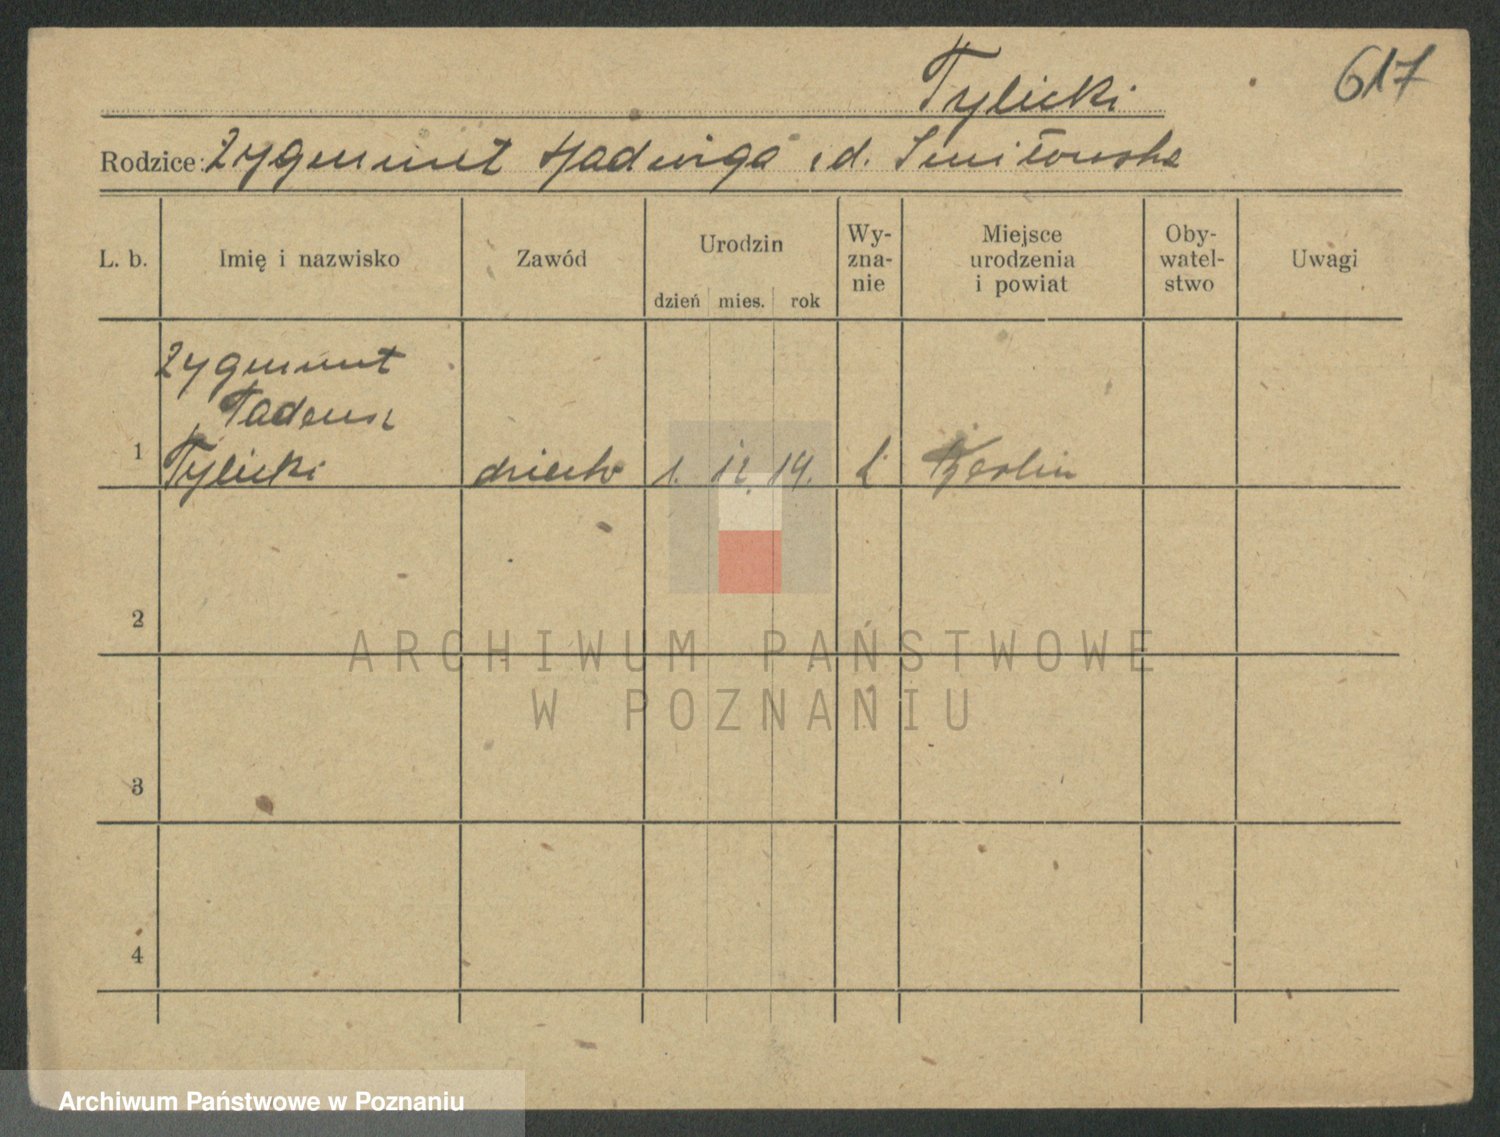 617
Tylicki
Rodzice: Zygmunt Hadwiga i d. Smiłowska
L. b. Imię i nazwisko Zawód Urodzin Wy-zna-nie Miejsce urodzenia i powiat Oby-watel-stwo Uwagi
dzień mies. rok
Zygmunt
Tadeusz
1 Tylicki dziecko 1. 12. 14. Berlin
2
3
4
ARCHIWUM PAŃSTWOWE
W POZNANIU
Archiwum Państwowe w Poznaniu